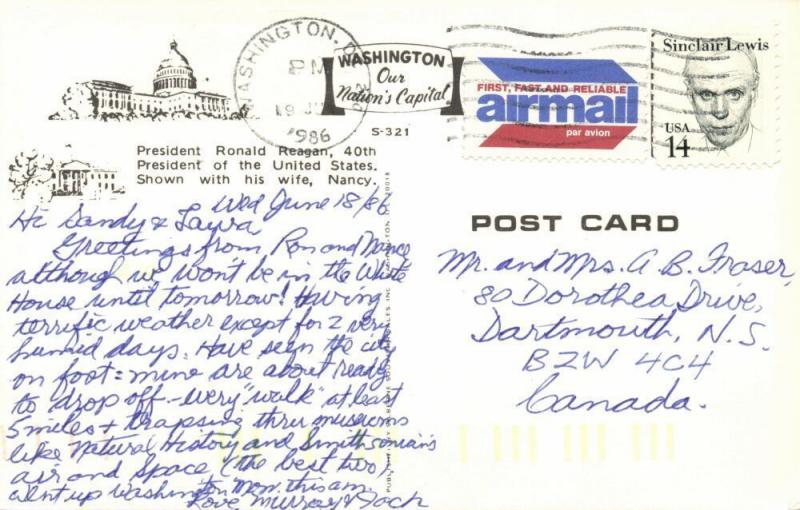 WASHINGTON, D.C.
PM
19 JU
1986
WASHINGTON
Our
Nation's Capital
S-321
FIRST, FAST AND RELIABLE
airmail
par avion
Sinclair Lewis
USA
14
President Ronald Reagan, 40th
President of the United States.
Shown with his wife, Nancy.
Wed June 18/86
Hi Sandy &
Greetings from Ron and Nance
although we won't be in the White
House until tomorrow! Having
terrific weather except for 2 very
humid days. Have seen the city
on foot = mine are about ready
to drop off - every "walk" at least
5 miles + trapsing thru museums
like Natural History and Smithsonian's
air and space (the best two)
went up Washington Mon. this am
Love Murray &
POST CARD
Mr. and Mrs. A. B. Fraser,
80 Dorothea Drive,
Dartmouth, N.S.
B2W 4C4
Canada.